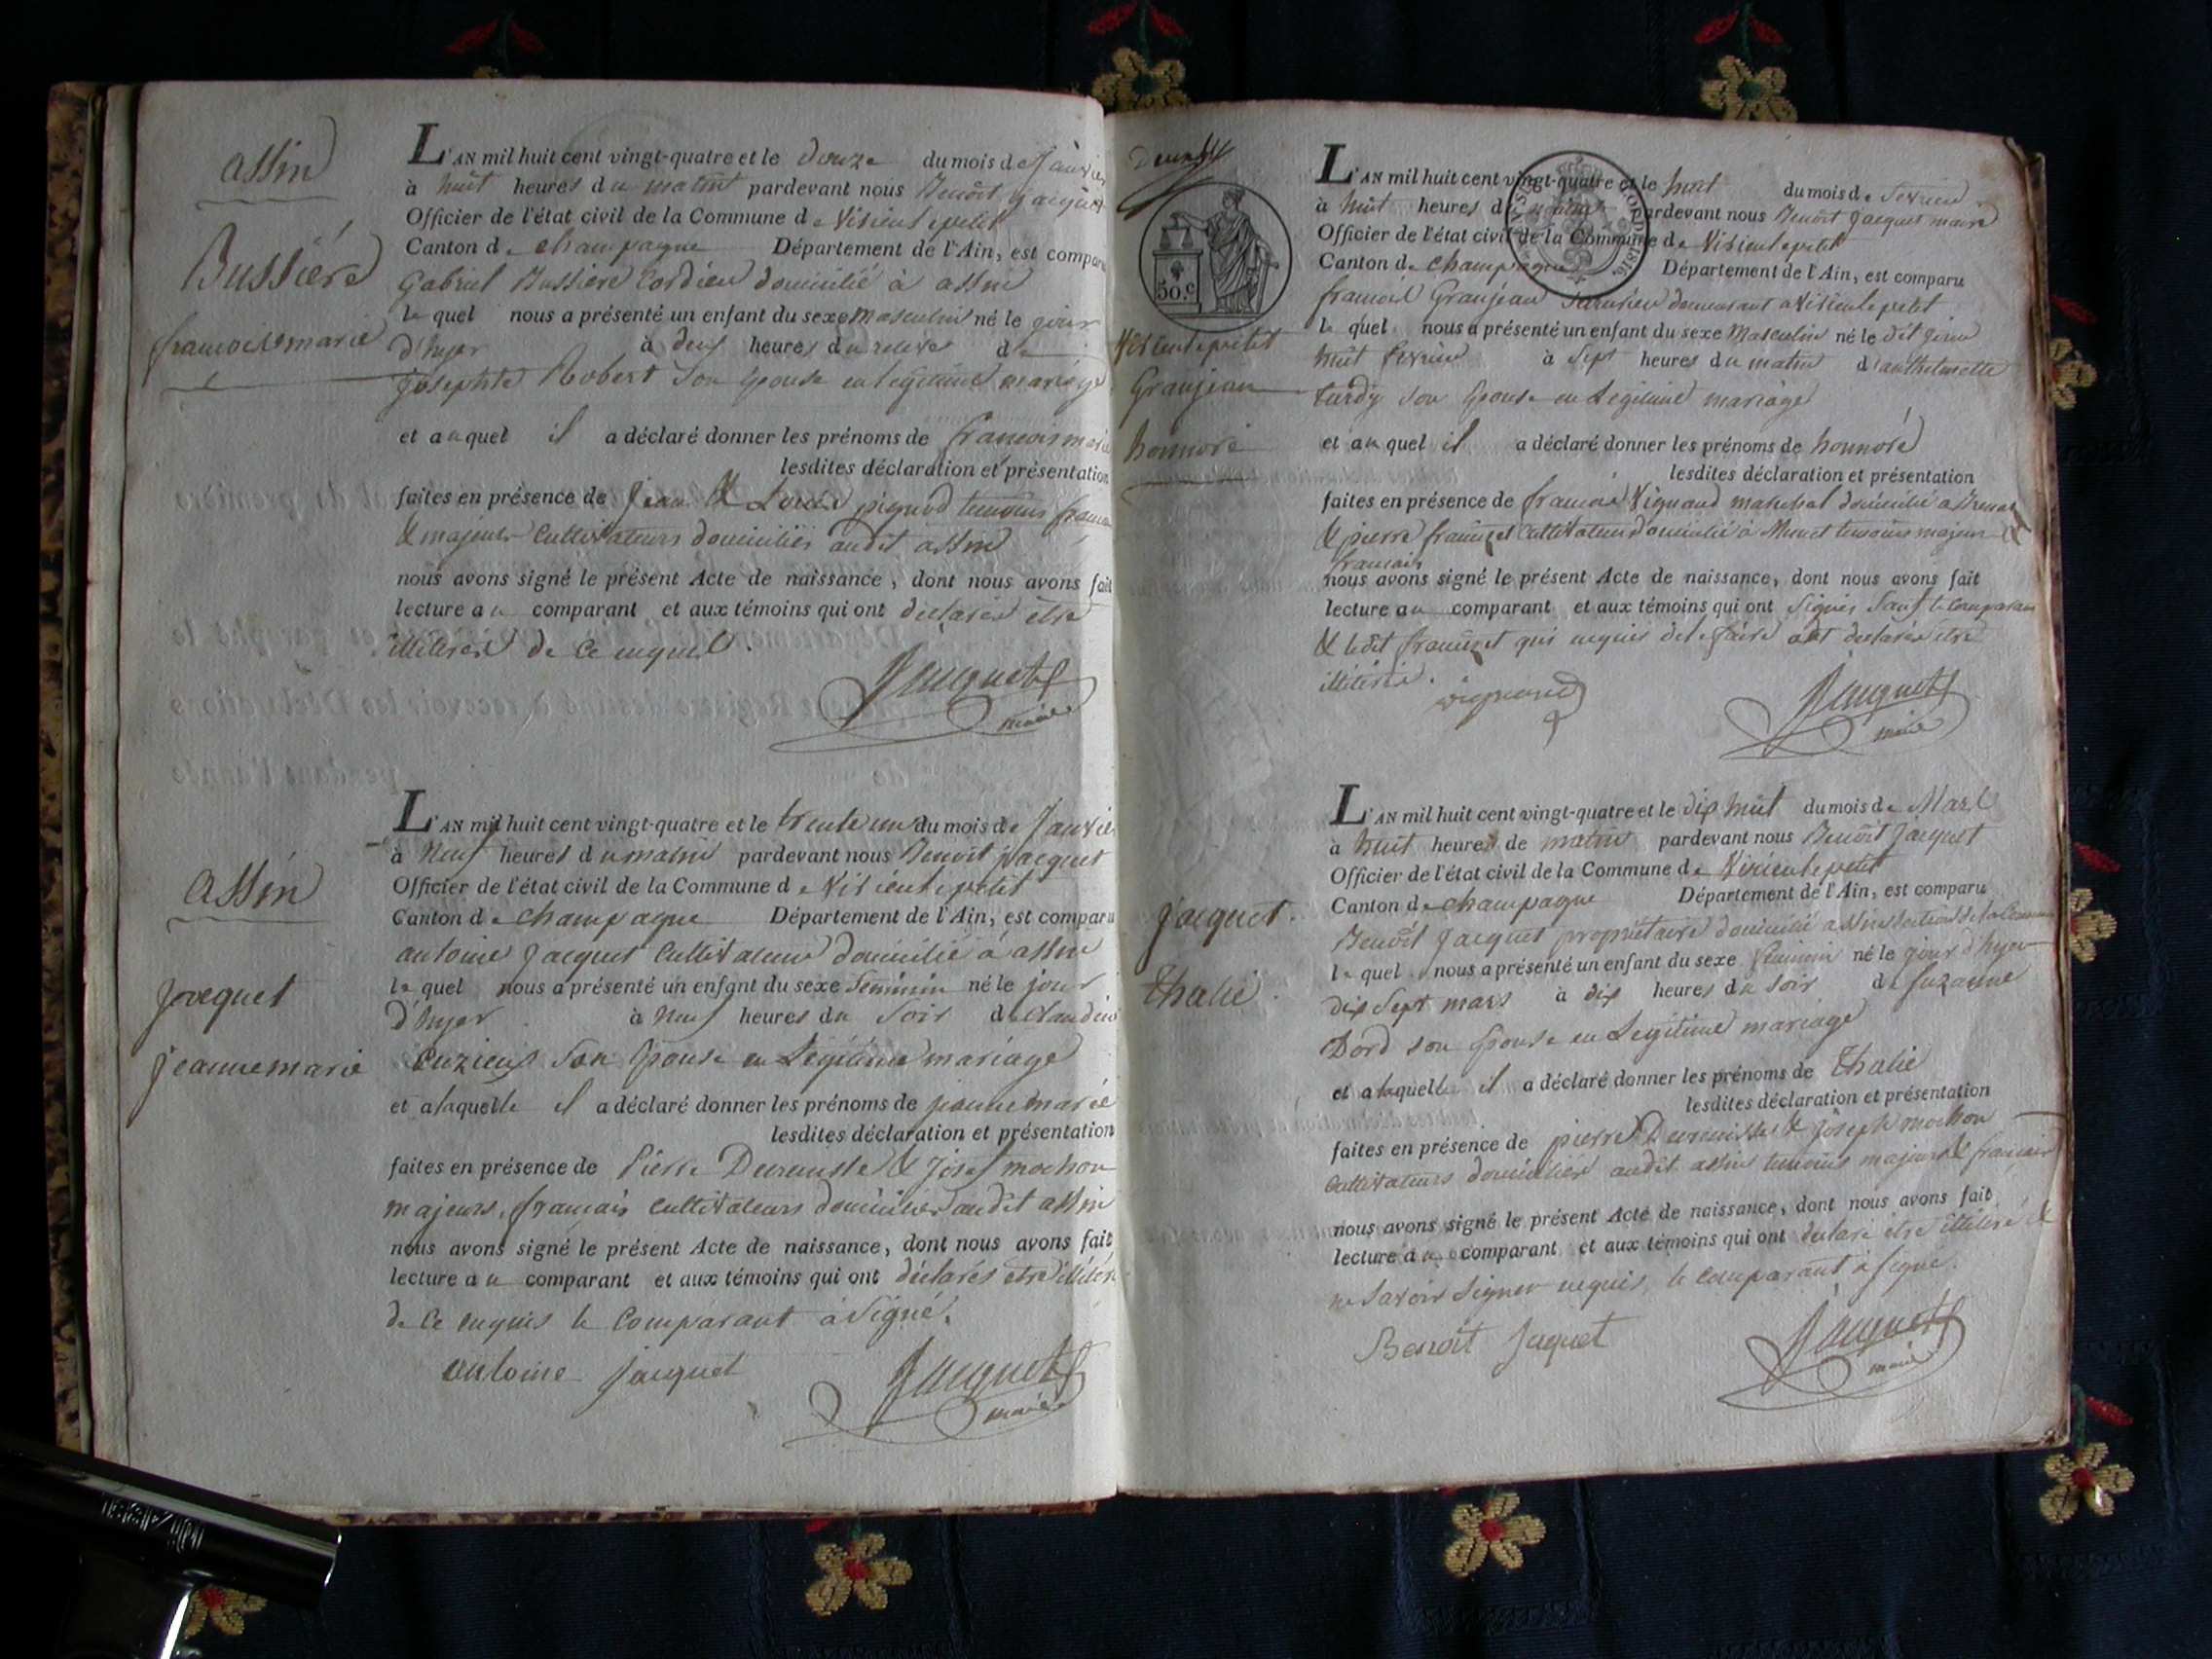 assin
Bussiére
francois marie
L'AN mil huit cent vingt-quatre et le douze du mois de Janvier
à huit heures du matin pardevant nous Benoît jacquet
Officier de l'état civil de la Commune de Virieu le petit
Canton de champagne Département de l'Ain, est comparu
Gabriel Bussiere Cordier domicilié à assin
lequel nous a présenté un enfant du sexe masculin né le jour
d'hyer à deux heures du de
Josephte Robert Son epouse en legitime mariage
et auquel il a déclaré donner les prénoms de francois marie
lesdites déclaration et présentation
faites en présence de Jean & Louis pignod temoins francais
& majeurs Cultivateurs domiciliés audit assin
nous avons signé le présent Acte de naissance, dont nous avons fait
lecture au comparant et aux témoins qui ont declarés etre
illiterés de ce enquis.
Jacquet
maire
assin
Jacquet
jeanne marie
L'AN mil huit cent vingt-quatre et le trente un du mois de Janvier
à Neuf heures du matin pardevant nous Benoît jacquet
Officier de l'état civil de la Commune de Virieu le petit
Canton de champagne Département de l'Ain, est comparu
antoine Jacquet Cultivateur domicilié à assin
lequel nous a présenté un enfant du sexe feminin né le jour
d'hyer à Neuf heures du Soir de Claudine
Cuzieux Son epouse en Legitime mariage
et à laquelle il a déclaré donner les prénoms de jeanne marie
lesdites déclaration et présentation
faites en présence de Pierre & Josef mochon
majeurs, francais Cultivateurs domiciliés audit assin
nous avons signé le présent Acte de naissance, dont nous avons fait
lecture au comparant et aux témoins qui ont déclarés etre
de ce enquis le Comparant à Signé.
antoine jacquet
Jacquet
maire
50.c
Virieu le petit
Granjean
honnoré
L'AN mil huit cent vingt-quatre et le huit du mois de fevrier
à huit heures du pardevant nous Benoît Jacquet maire
Officier de l'état civil de la Commune de Virieu le petit
Canton de champagne Département de l'Ain, est comparu
francois Granjean demeurant a Virieu le petit
lequel nous a présenté un enfant du sexe Masculin né le dit jour
huit fevrier à Sept heures du matin d'anthelmette
turdy son epouse en Legitime mariage
et auquel il a déclaré donner les prénoms de honnoré
lesdites déclaration et présentation
faites en présence de francois Vignand marechal domicilié a
& pierre Cultivateur domicilié à temoins majeurs &
francais
nous avons signé le présent Acte de naissance, dont nous avons fait
lecture au comparant et aux témoins qui ont Signés Sauf le Comparant
& ledit qui enquis de le faire ont declarés etre
illiterés.
Vignand
Jacquet
maire
Jacquet.
Thalie.
L'AN mil huit cent vingt-quatre et le dix huit du mois de Mars
à huit heures de matin pardevant nous Benoît Jacquet
Officier de l'état civil de la Commune de Virieu le petit
Canton de champagne Département de l'Ain, est comparu
Benoît Jacquet propriétaire domicilié a
lequel nous a présenté un enfant du sexe feminin né le jour d'hyer
dix Sept mars à dix heures du Soir de Suzanne
Bord son epouse en Legitime mariage
et à laquelle il a déclaré donner les prénoms de Thalie
lesdites déclaration et présentation
faites en présence de pierre & Joseph mochon
Cultivateurs domiciliés audit assin temoins majeurs & francais
nous avons signé le présent Acte de naissance, dont nous avons fait
lecture au comparant et aux témoins qui ont declaré etre illiteré &
ne Savoir Signer enquis, le comparant à signé.
Benoit Jaquet
Jacquet
maire